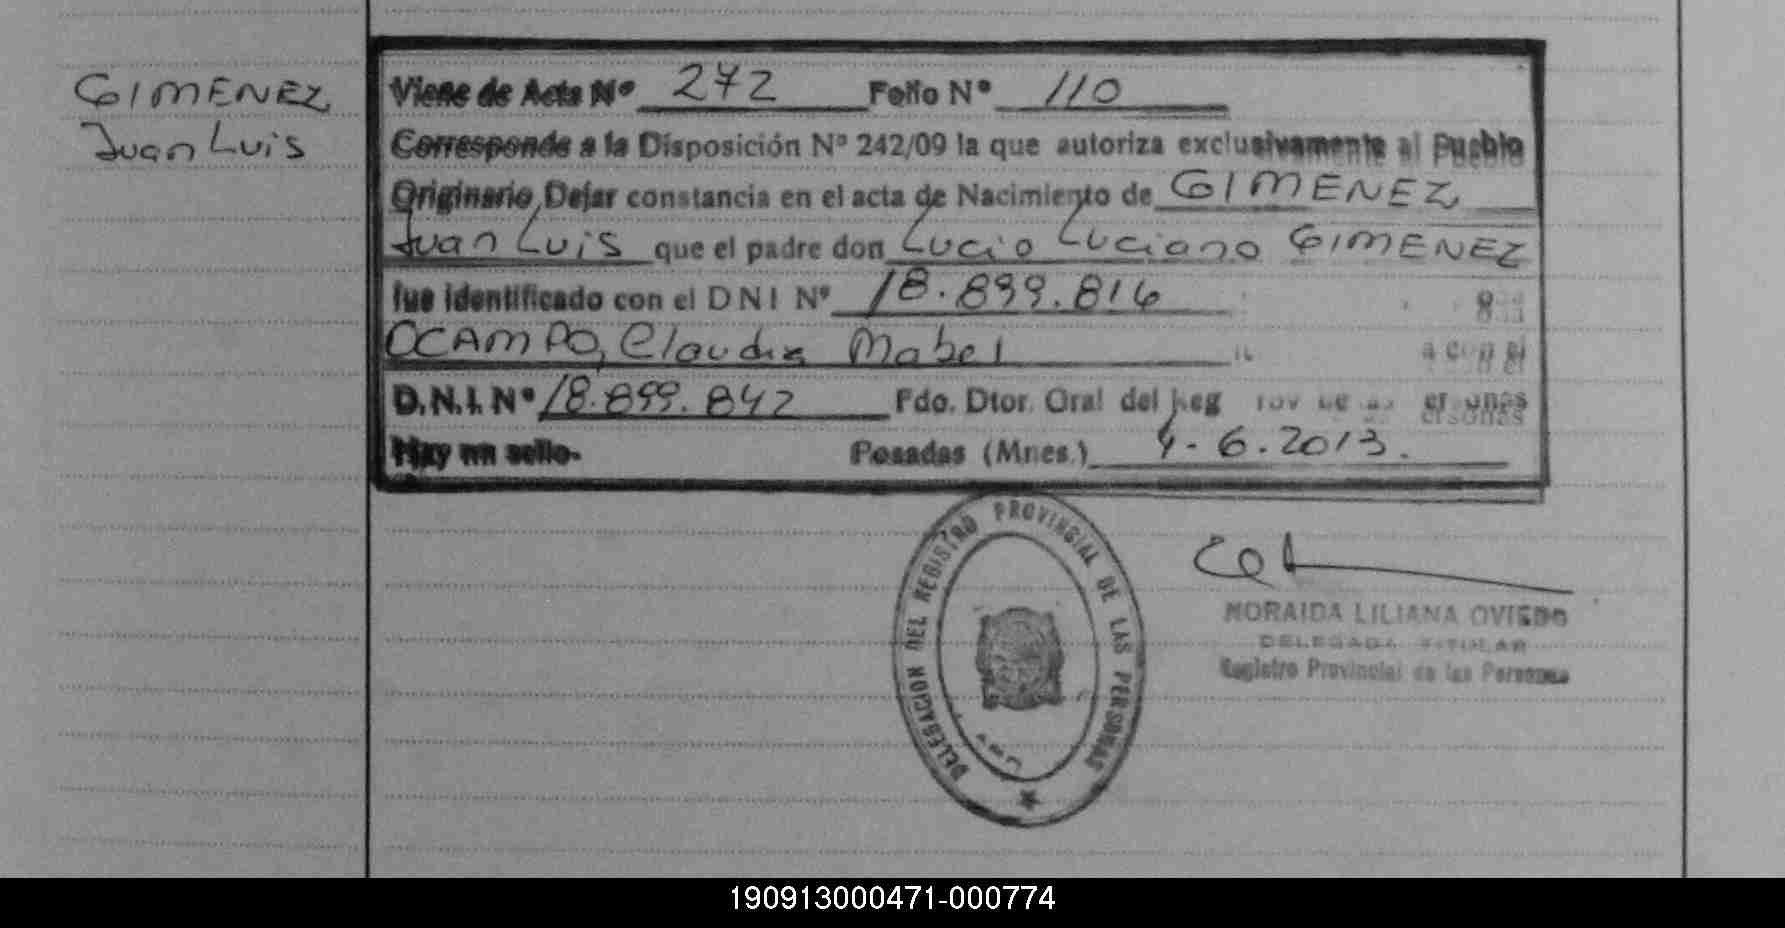 GIMENEZ
Juan Luis
Viene de Acta Nº 272 Folio Nº 110
Corresponde a la Disposición Nº 242/09 la que autoriza exclusivamente al Pueblo
Originario Dejar constancia en el acta de Nacimiento de GIMENEZ
Juan Luis que el padre don Lucio Luciano GIMENEZ
fue identificado con el DNI Nº 18.899.816
OCAMPO, Claudia Mabel a con el
D.N.I. Nº 18.899.842 Fdo. Dtor. Gral del Reg
Hay un sello- Posadas (Mnes.) 4-6.2013.
DELEGACION DEL REGISTRO PROVINCIAL DE LAS PERSONAS
NORAIDA LILIANA OVIEDO
DELEGADA TITULAR
Registro Provincial de las Personas
190913000471-000774